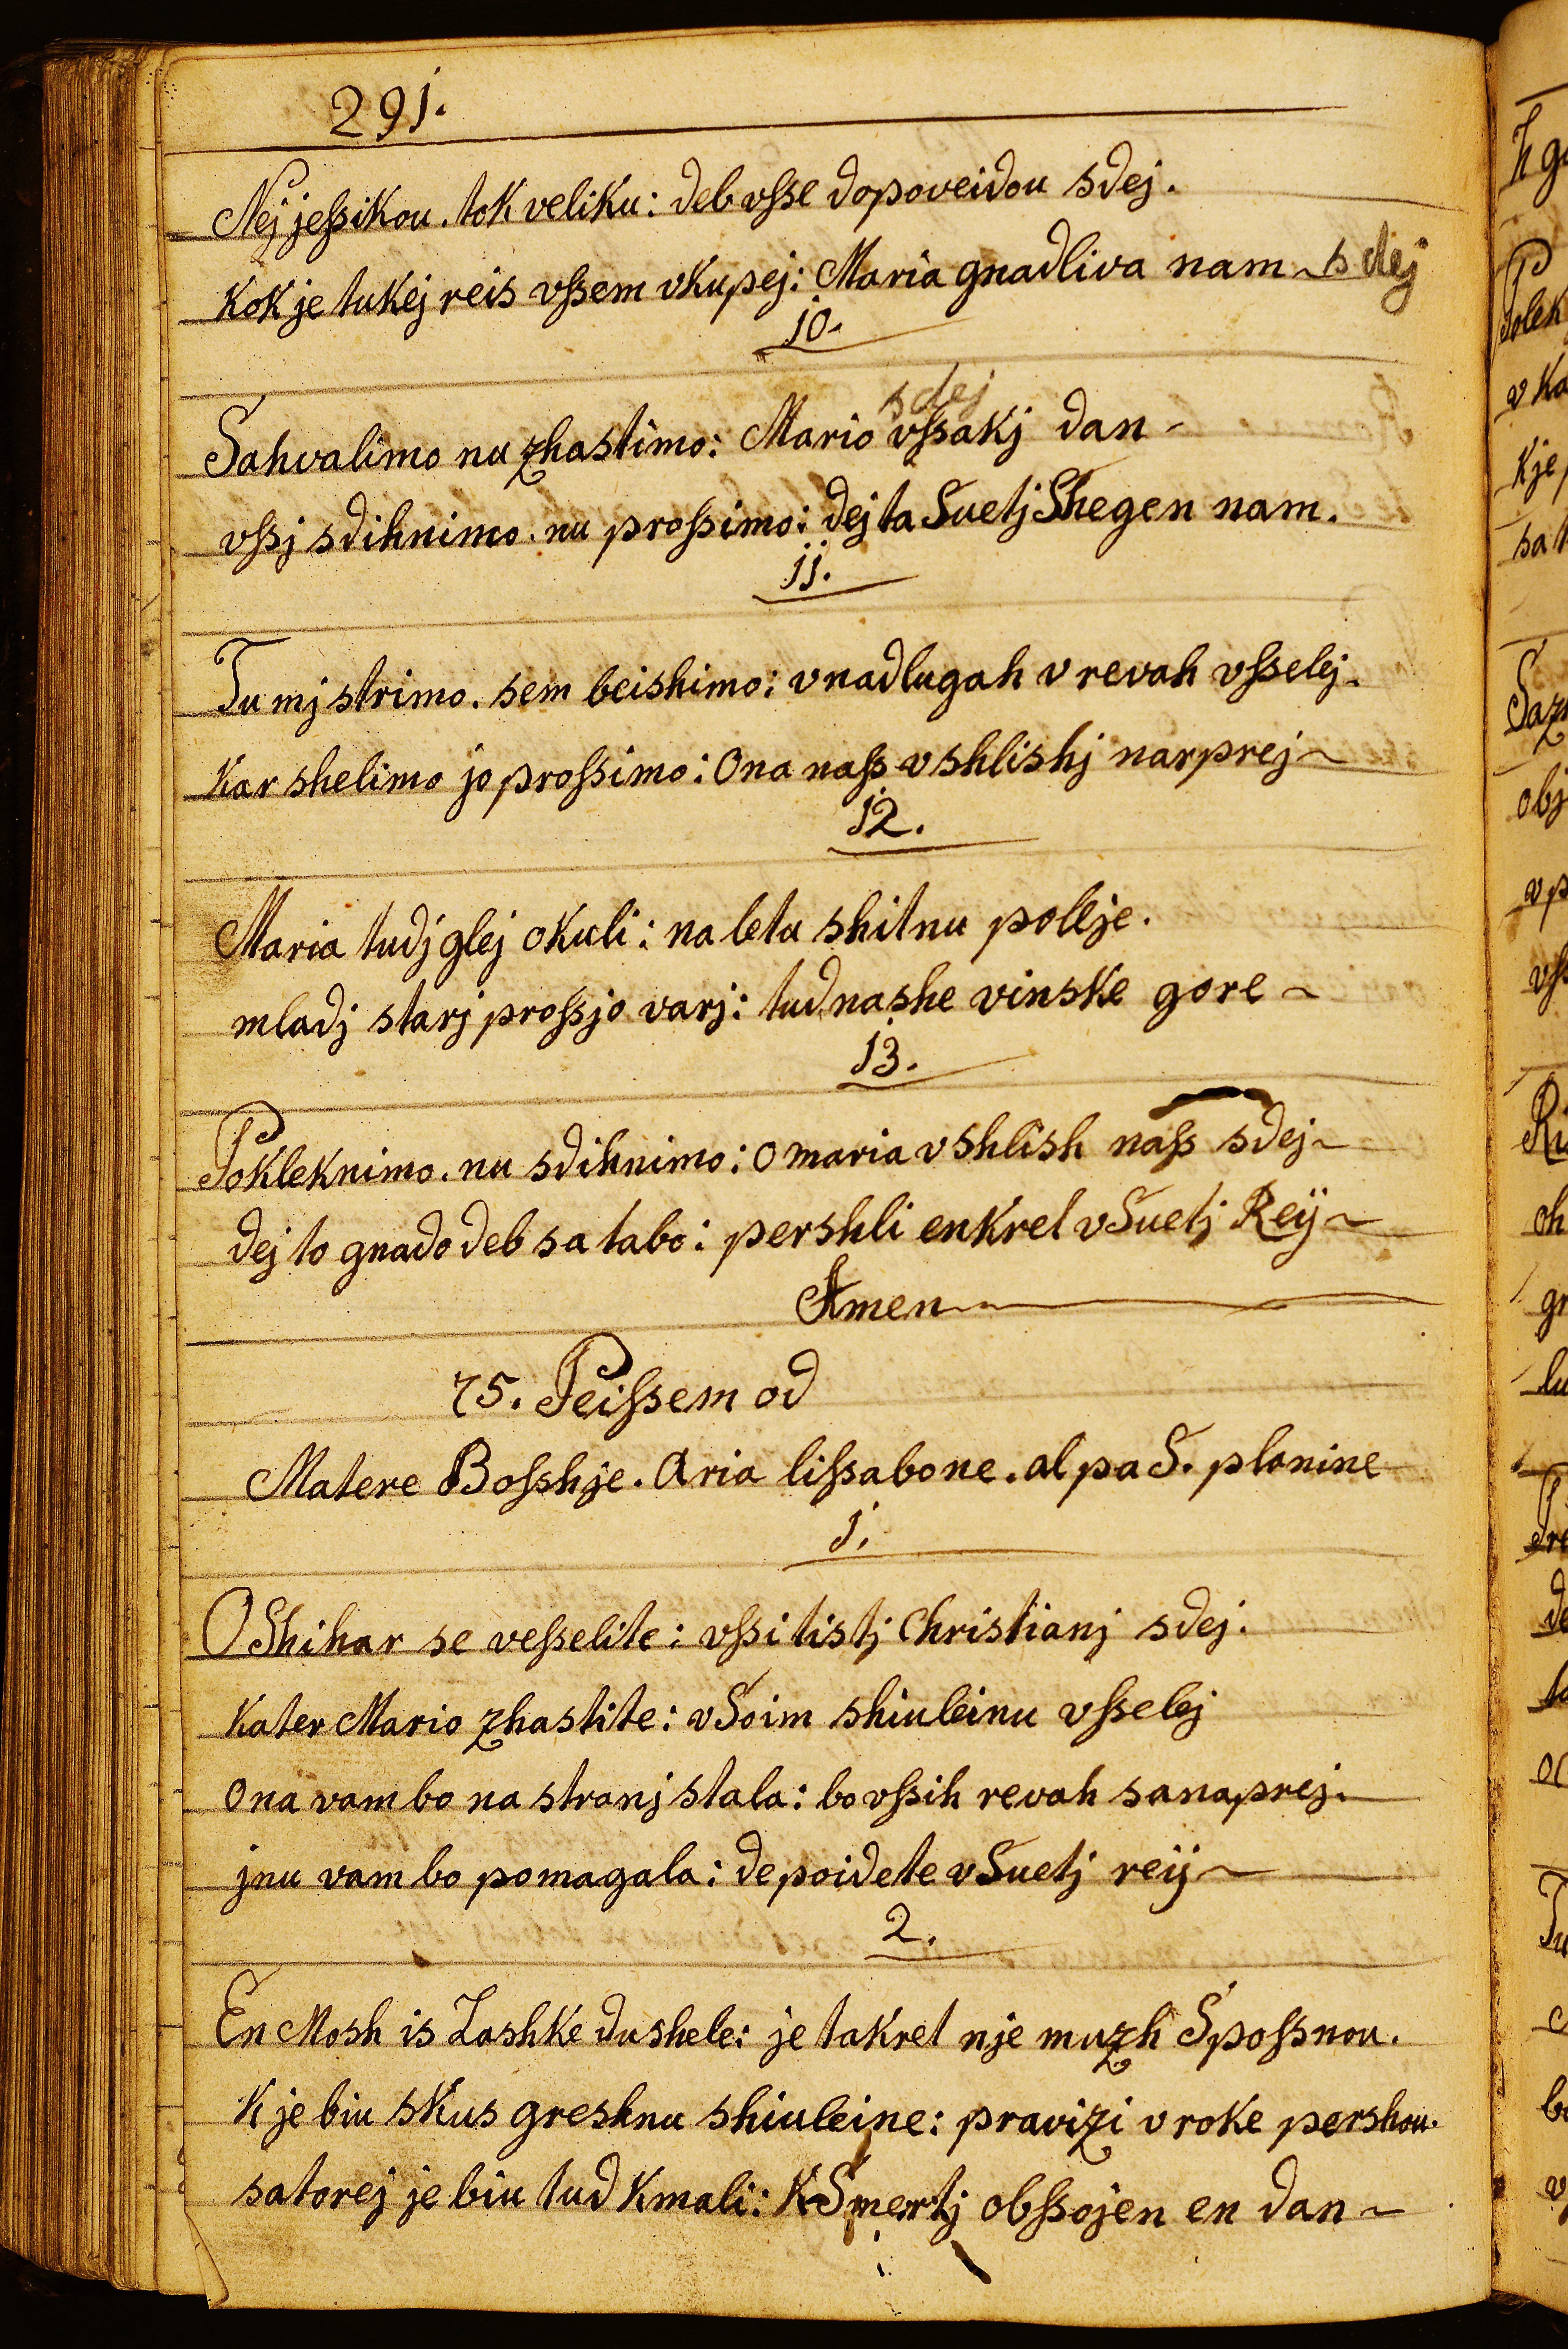 291.
Nej jeſsikou. tok veliku: deb vſse dopoveidou sdej.
Kok je tukej reis vſsem vkupej: Maria gnadliva nam ~ sdej
10.
sdej
Sahvalimo nu zhastimo: Mario vſsakj dan ~
vſsj sdihnimo. nu proſsimo: dej ta Suetj Shegen nam.
11.
Tu mj strimo. sem beishimo: v nadlugah v revah vſselej.
Kar shelimo jo proſsimo: Ona naſs v shlishj narprej ~
12.
Maria tudj glej okuli: na letu shitnu pollje.
mladj starj proſsjo varj: tud nashe vinske gore ~
13.
Pokleknimo. nu sdihnimo: o maria v shlish naſs sdej ~
dej to gnado deb sa tabo: pershli enkret v Suetj Reÿ ~
Amen
75. Peiſsem od
Matere Boſshje. Aria liſsabone. al pa S. planine
1.
O Shihar se veſselite: vſsi tistj Christianj sdej.
Kater Mario zhastite: v Soim shiuleinu vſselej
Ona vam bo na stranj stala: bo vſsih revah sanaprej.
jnu vam bo pomagala: de poidete v Suetj reÿ ~
2.
En Mosh is Lashke dushele: je takret nje muzh Spoſsnou.
K je biu skus greshnu shiuleine: pravizi v roke pershou.
satorej je biu tud Kmali: K Smertj obſsojen en dan ~